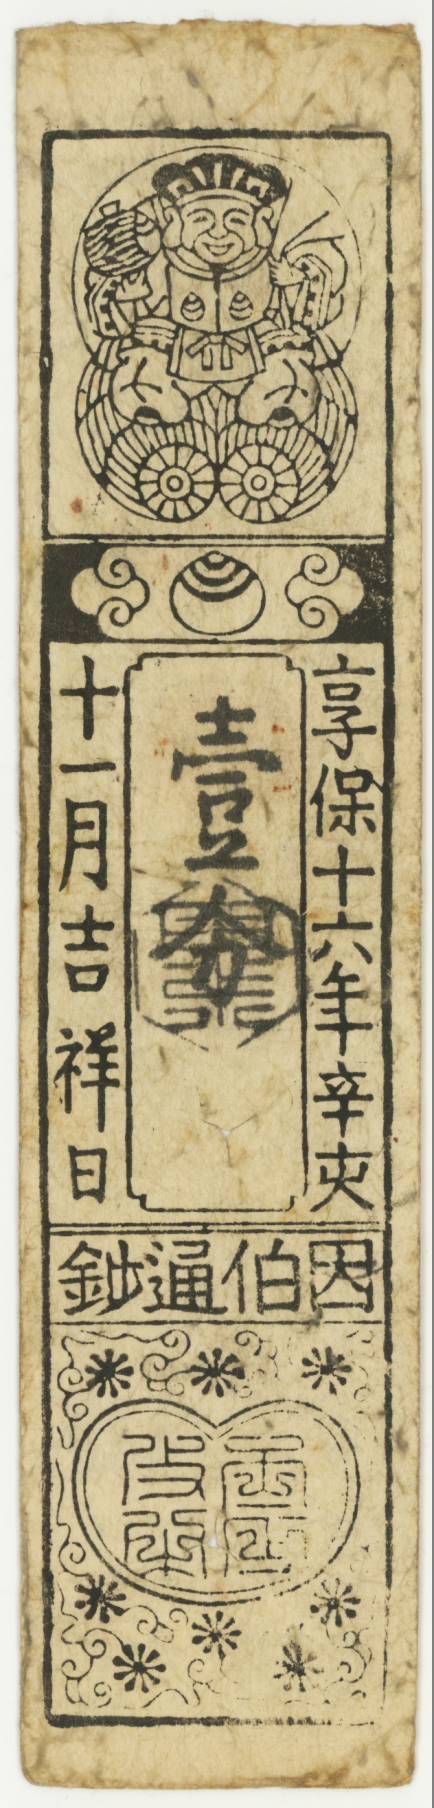 享保十六年辛亥
壹分
十一月吉祥日
因伯通鈔